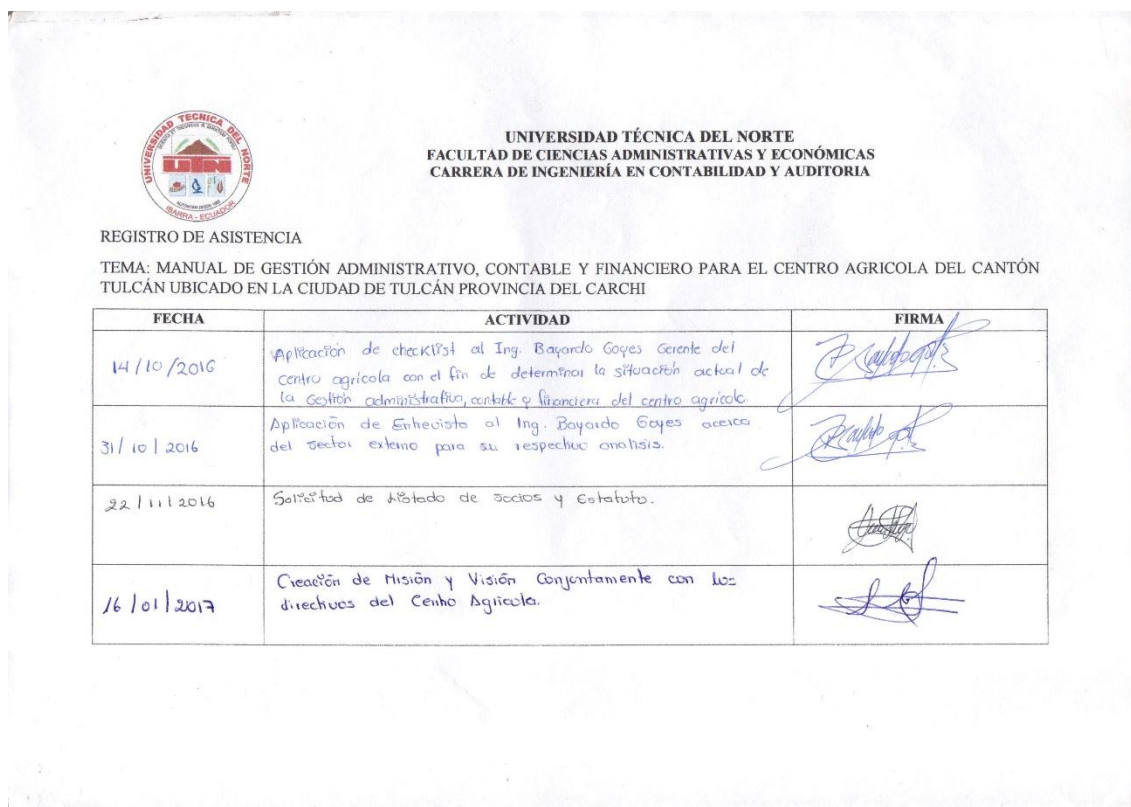 UNIVERSIDAD TECNICA DEL NORTE
UTN
IBARRA - ECUADOR
UNIVERSIDAD TÉCNICA DEL NORTE
FACULTAD DE CIENCIAS ADMINISTRATIVAS Y ECONÓMICAS
CARRERA DE INGENIERÍA EN CONTABILIDAD Y AUDITORIA
REGISTRO DE ASISTENCIA
TEMA: MANUAL DE GESTIÓN ADMINISTRATIVO, CONTABLE Y FINANCIERO PARA EL CENTRO AGRICOLA DEL CANTÓN
TULCÁN UBICADO EN LA CIUDAD DE TULCÁN PROVINCIA DEL CARCHI
FECHA ACTIVIDAD FIRMA
14/10/2016
Aplicación de checklist al Ing. Bayardo Goyes Gerente del
centro agrícola con el fin de determinar la situación actual de
la Gestión administrativa, contable y financiera del centro agrícola.
31/10/2016
Aplicación de Entrevista al Ing. Bayardo Goyes acerca
del sector externo para su respectivo analisis.
22/11/2016
Solicitud de Listado de socios y Estatuto.
16/01/2017
Creación de Misión y Visión Conjuntamente con los
directivos del Centro Agricola.